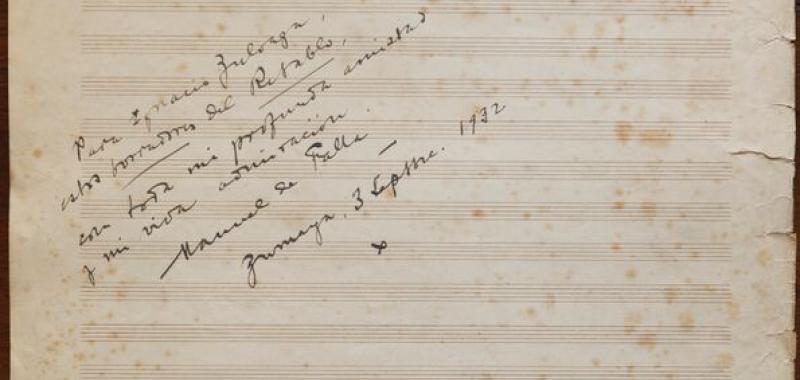 Para Ignacio Zuloaga,
estos borradores del Retablo,
con toda mi profunda amistad
y mi viva admiración.
Manuel de Falla
Zumaya, 3 Septbre. 1932